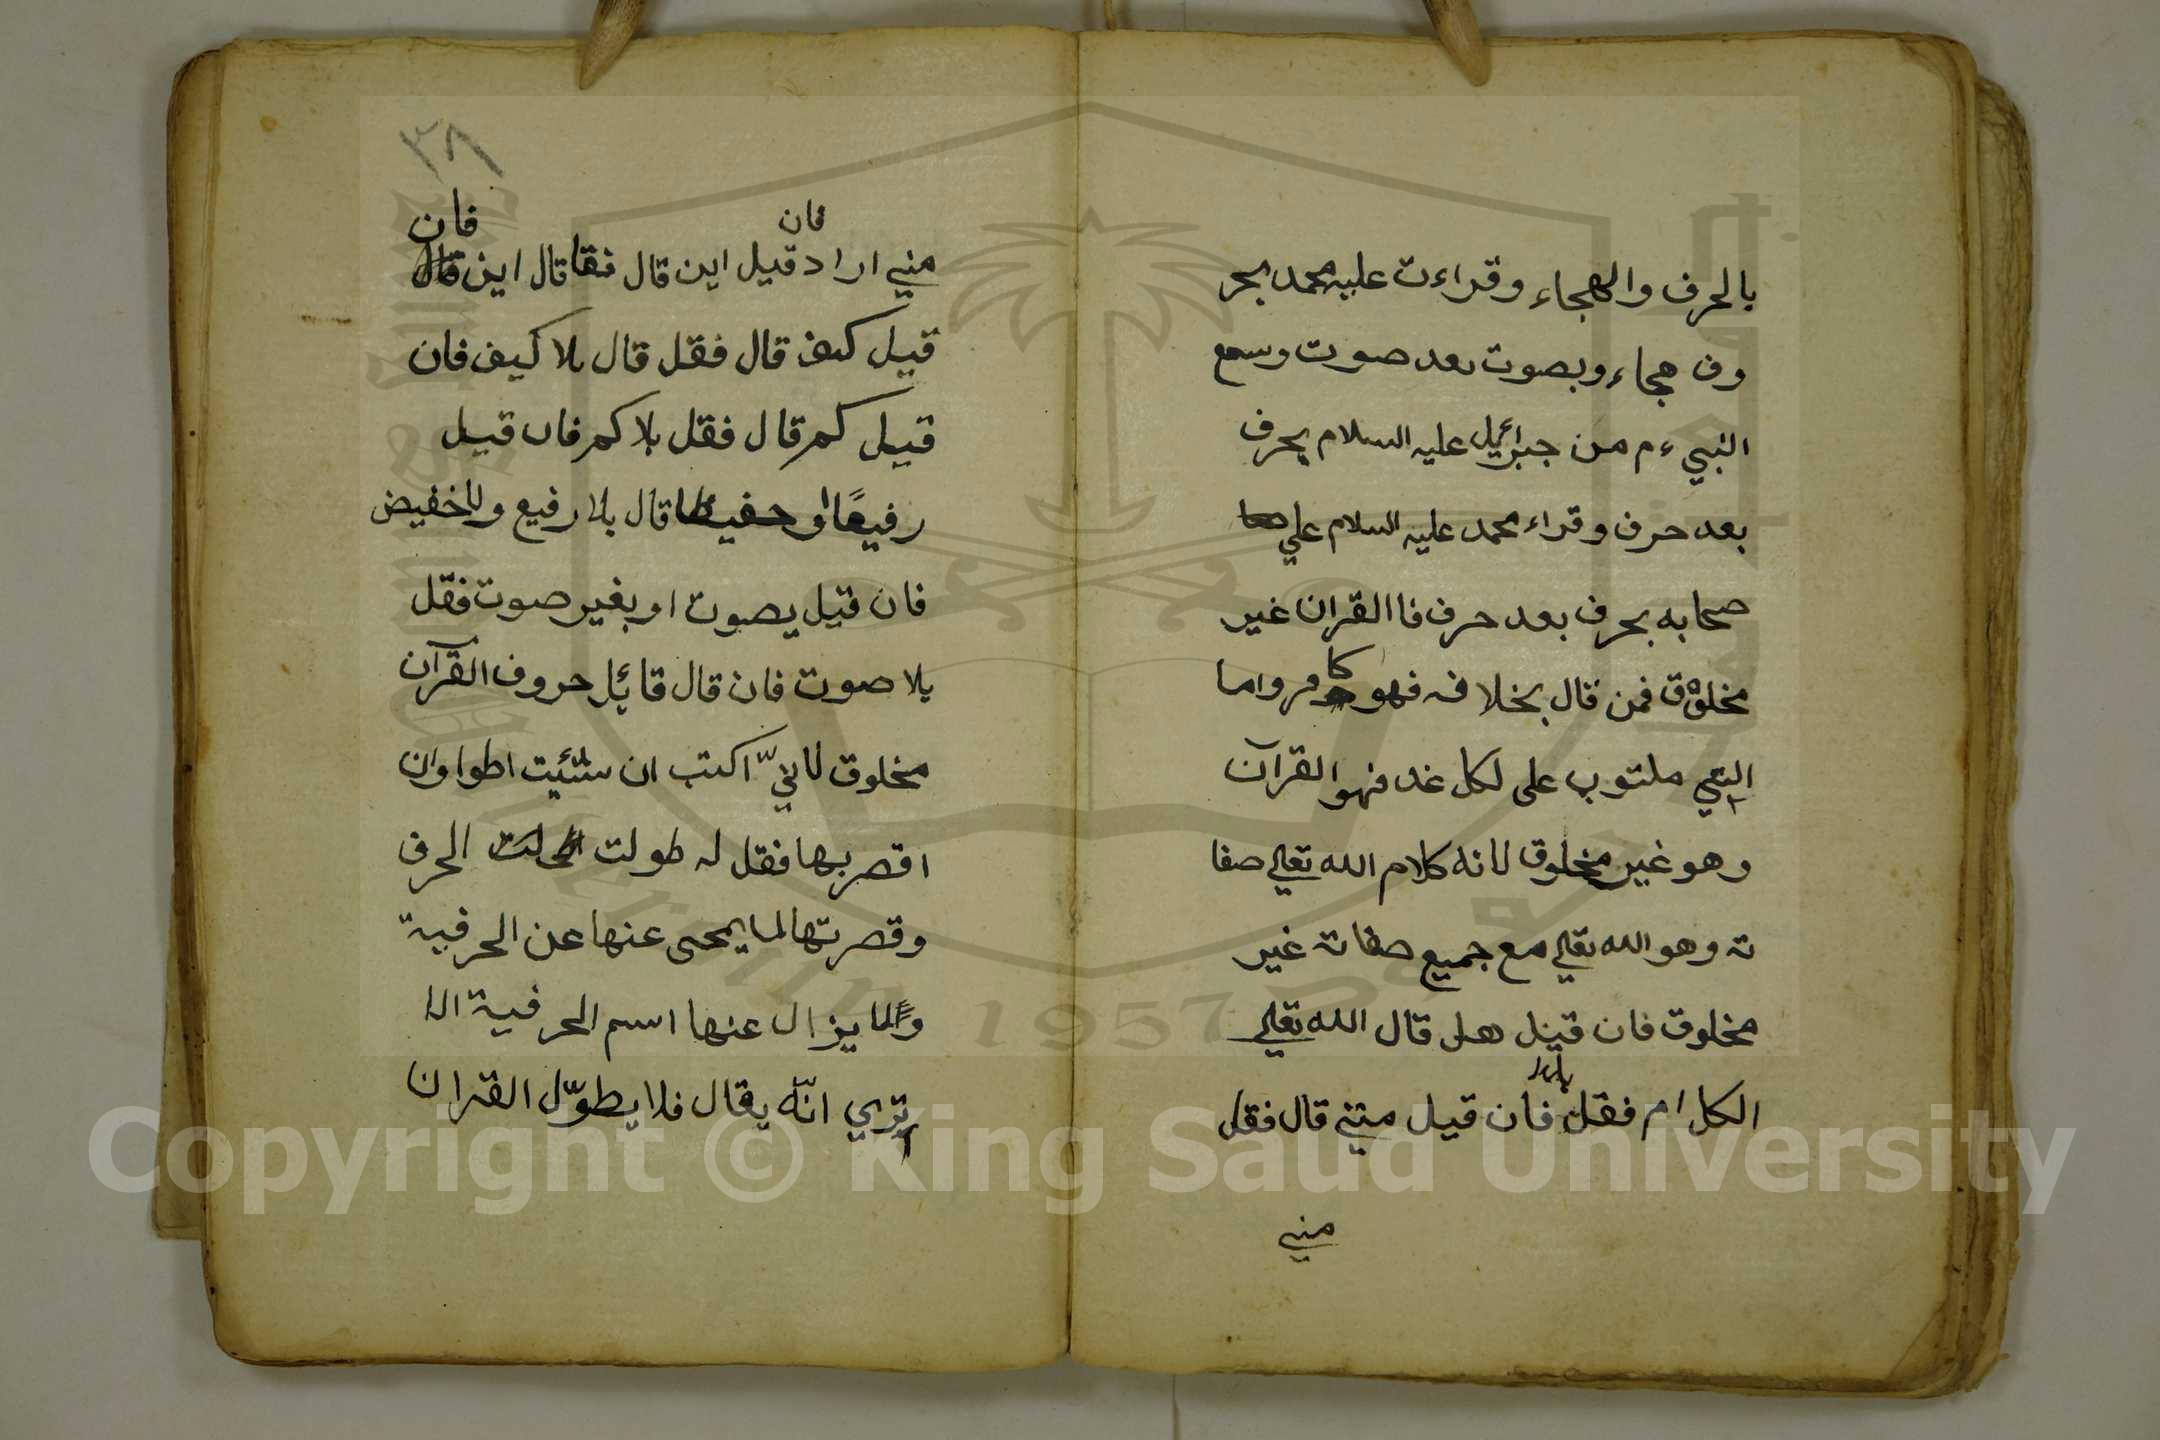 بالحرف والهجاء وقراءت عليه محمد بحر
وف هجاء وبصوت بعد صوت وسمع
النبي ءم من جبرائيل عليه السلام بحرف
بعد حرف وقراء محمد عليه السلام علي
صحابه بحرف بعد حرف فاالقران غير
مخلوق فمن قال بخلافه فهو كا فر واما
التي ملتوب على لكل غد فهو القرآن
وهو غير مخلوق لانه كلام الله تعلي صفا
ته وهو الله تعلي مع جميع صفاته غير
مخلوق فان قيل هل قال الله تعلي
الكل ام فقل فان قيل متي قال فقل
مني
٣٨
فان
فان
مني اراد قيل اين قال فقا قال اين
قيل كيف قال فقل قال بلا كيف فان
قيل كم قال فقل بلا كم فان قيل
رفيعًا او حفيظا قال بلا رفيع ولا خفيض
فان قيل بصوت او بغير صوت فقل
بلا صوت فان قال قائل حروف القرآن
مخلوق لانيّ اكتب ان شئيت اطوا وان
اقصر بها فقل له طولت الحرف
وقصرتها لما يمحى عنها عن الحرفية
ولما يزال عنها اسم الحرفية الا
تري انّه يقال فلا يطوّل القران
Copyright © King Saud University
1957